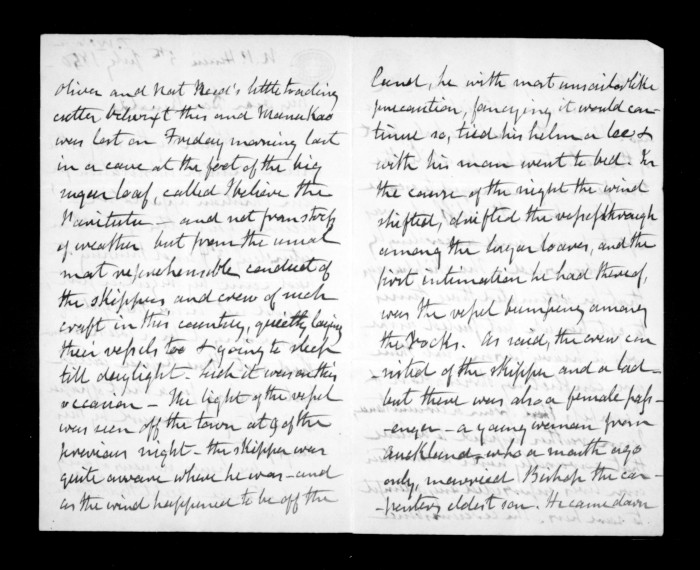 Oliver and Nat Reed's little trading
cutter betwixt this and Manukao
was lost on Friday morning last
in a cave at the foot of the big
sugar loaf, called I believe the
— and not from stress
of weather but from the usual
most reprehensible conduct of
the skippers and crew of such
craft in this country, quietly laying
their vessels too & going to sleep
till daylight. Such it was on this
occasion — The light of the vessel
was seen off the town at 9 of the
previous night. the skipper was
quite aware where he was — and
as the wind happened to be off the
land, he with most unsailorlike
precaution, fancying it would con-
tinue so, tied his helm a lee &
with his man went to bed. In
the course of the night the wind
shifted, drifted the vessel through
among the sugar loaves, and the
first intimation he had thereof,
was the vessel bumping among
the rocks. As said, the crew con-
sisted of the skipper and a lad —
but there was also a female pass-
-enger — a young woman from
Auckland — who a month ago
only, married Bishop the car-
-penters eldest son. He came down